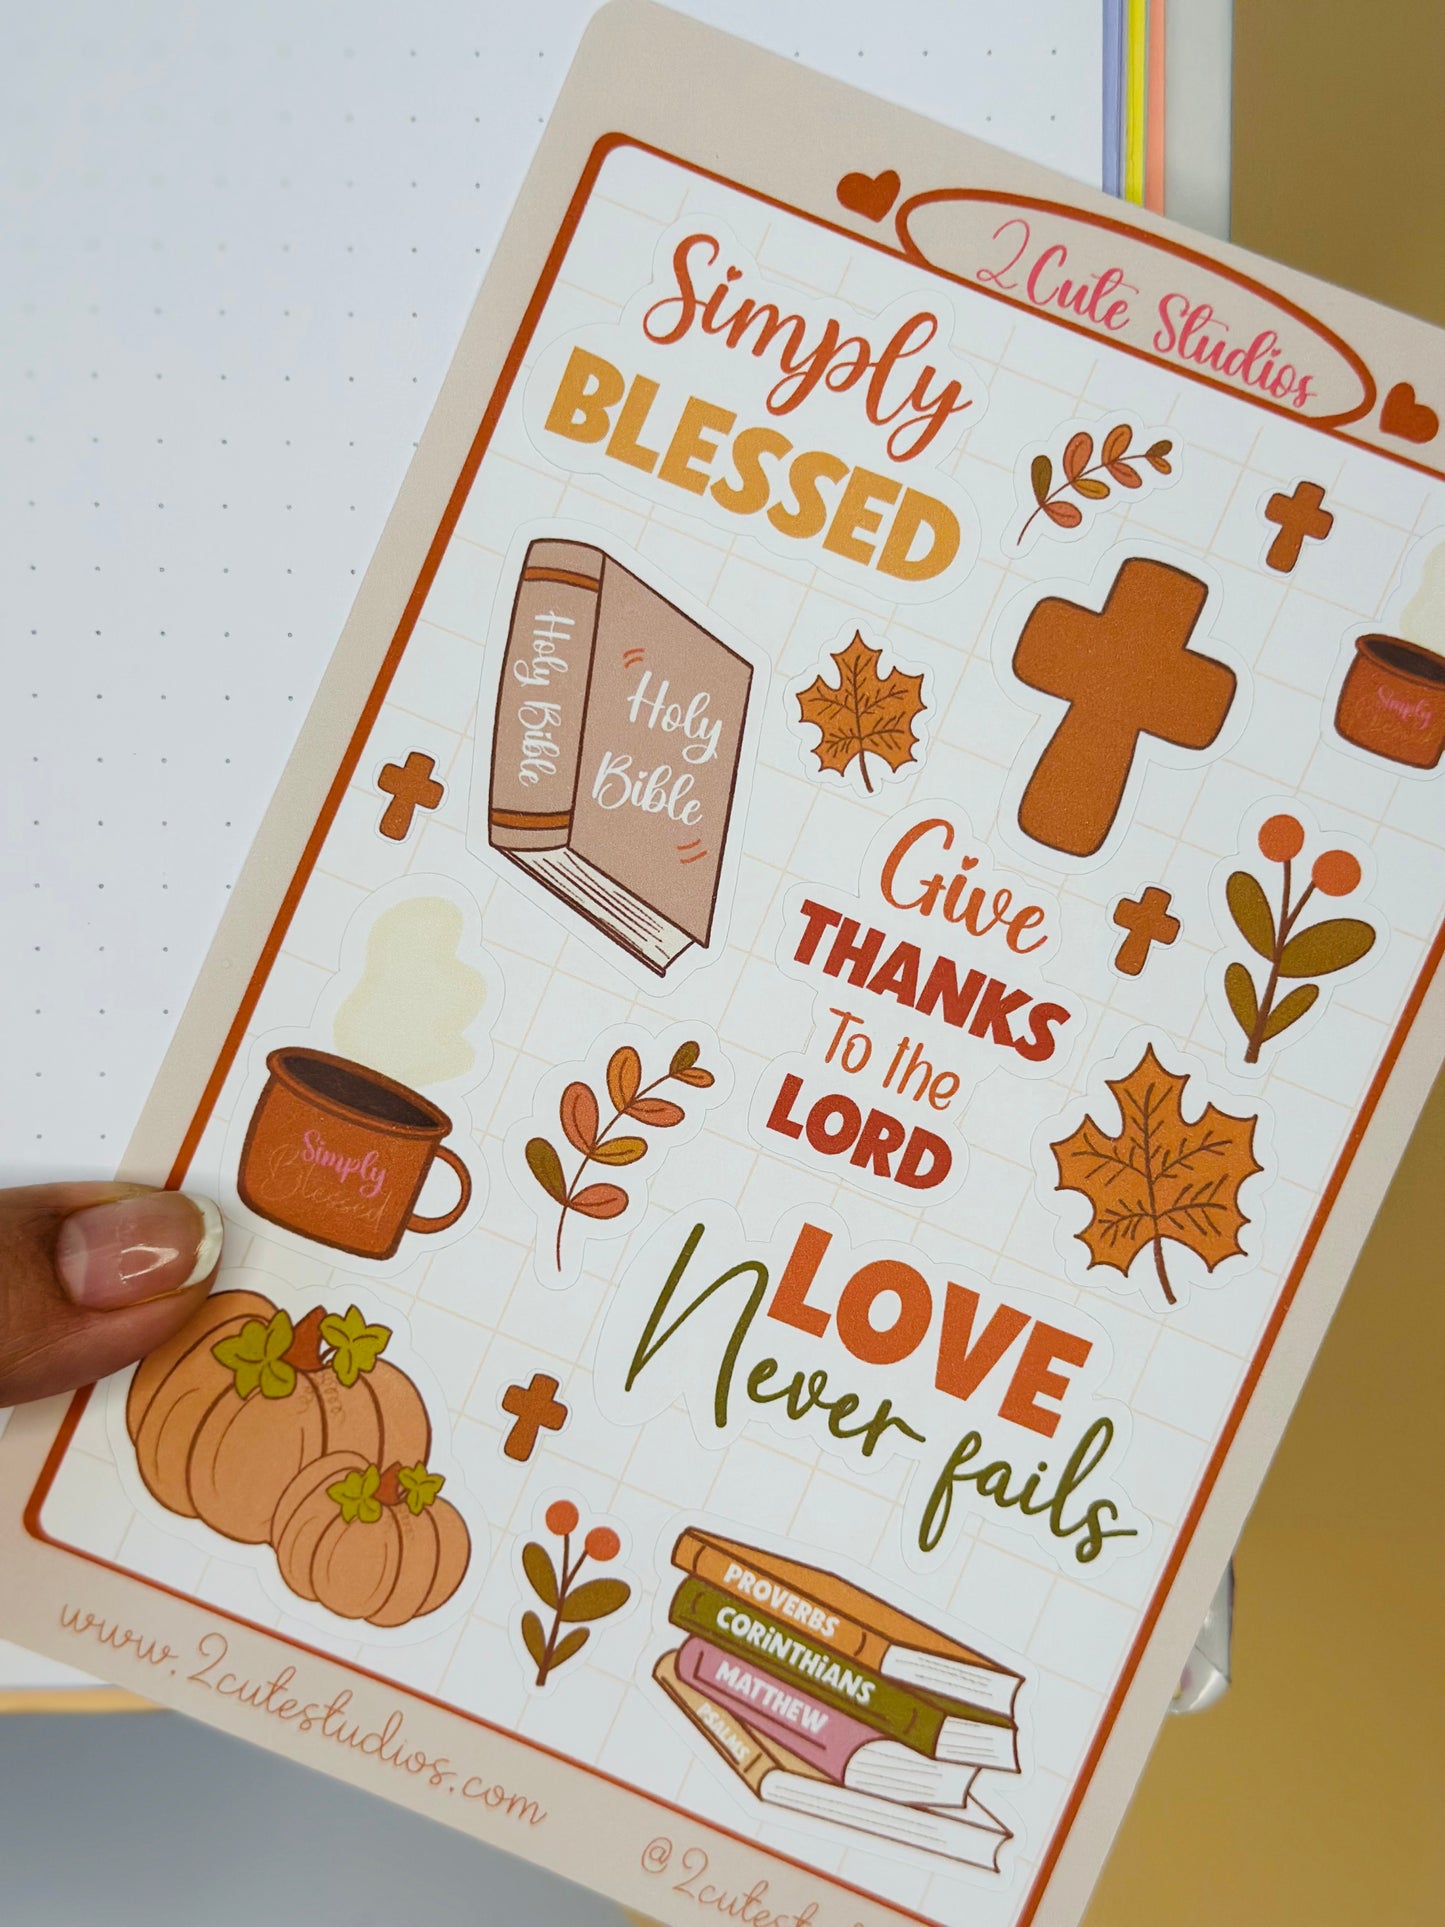 2 Cute Studios
Simply
BLESSED
Holy Bible
Holy
Bible
Simply
Blessed
Give
THANKS
To the
LORD
Simply
Blessed
LOVE
Never fails
PROVERBS
CORiNTHiANS
MATTHEW
PSALMS
www.2cutestudios.com